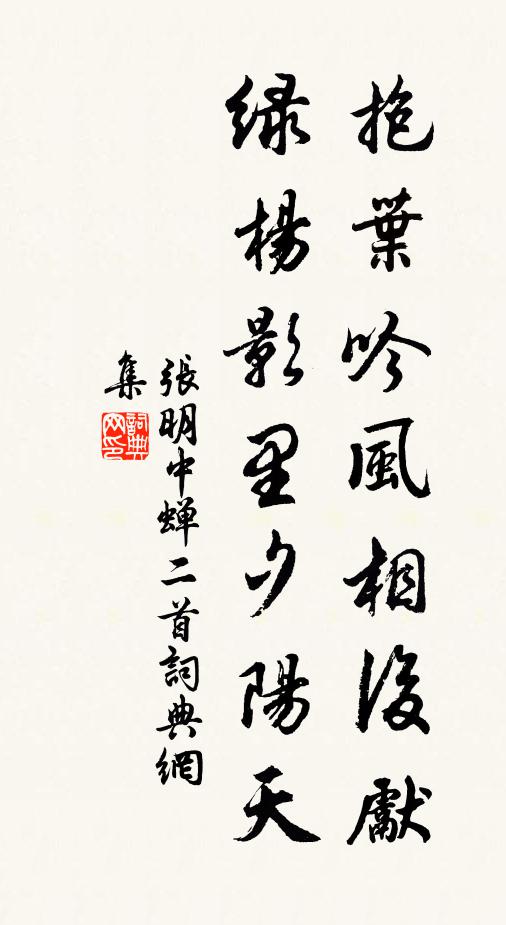 抱葉吟風相後獻
緑楊影里夕陽天
張明中蝉二首詞典網
集
詞典网印